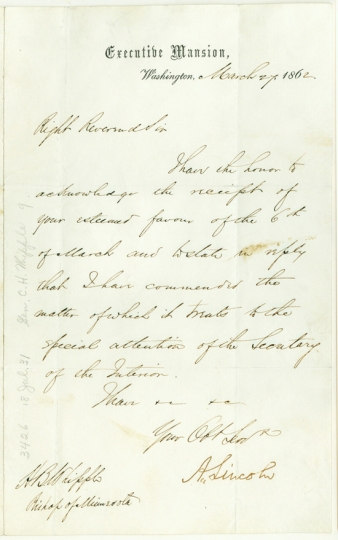 Executive Mansion,
Washington, March 27, 1862.
Right Reverend Sir
I have the honor to
acknowledge the receipt of
your esteemed favour of the 6th
of March and to state in reply
that I have commended the
matter of which it treats to the
special attention of the Secretary
of the Interior.
I have &c &c
Your Obt Servt
A. Lincoln
H B Whipple
Bishop of Minnesota
3426 18 Jul. 31 Gen. C. H. Whipple